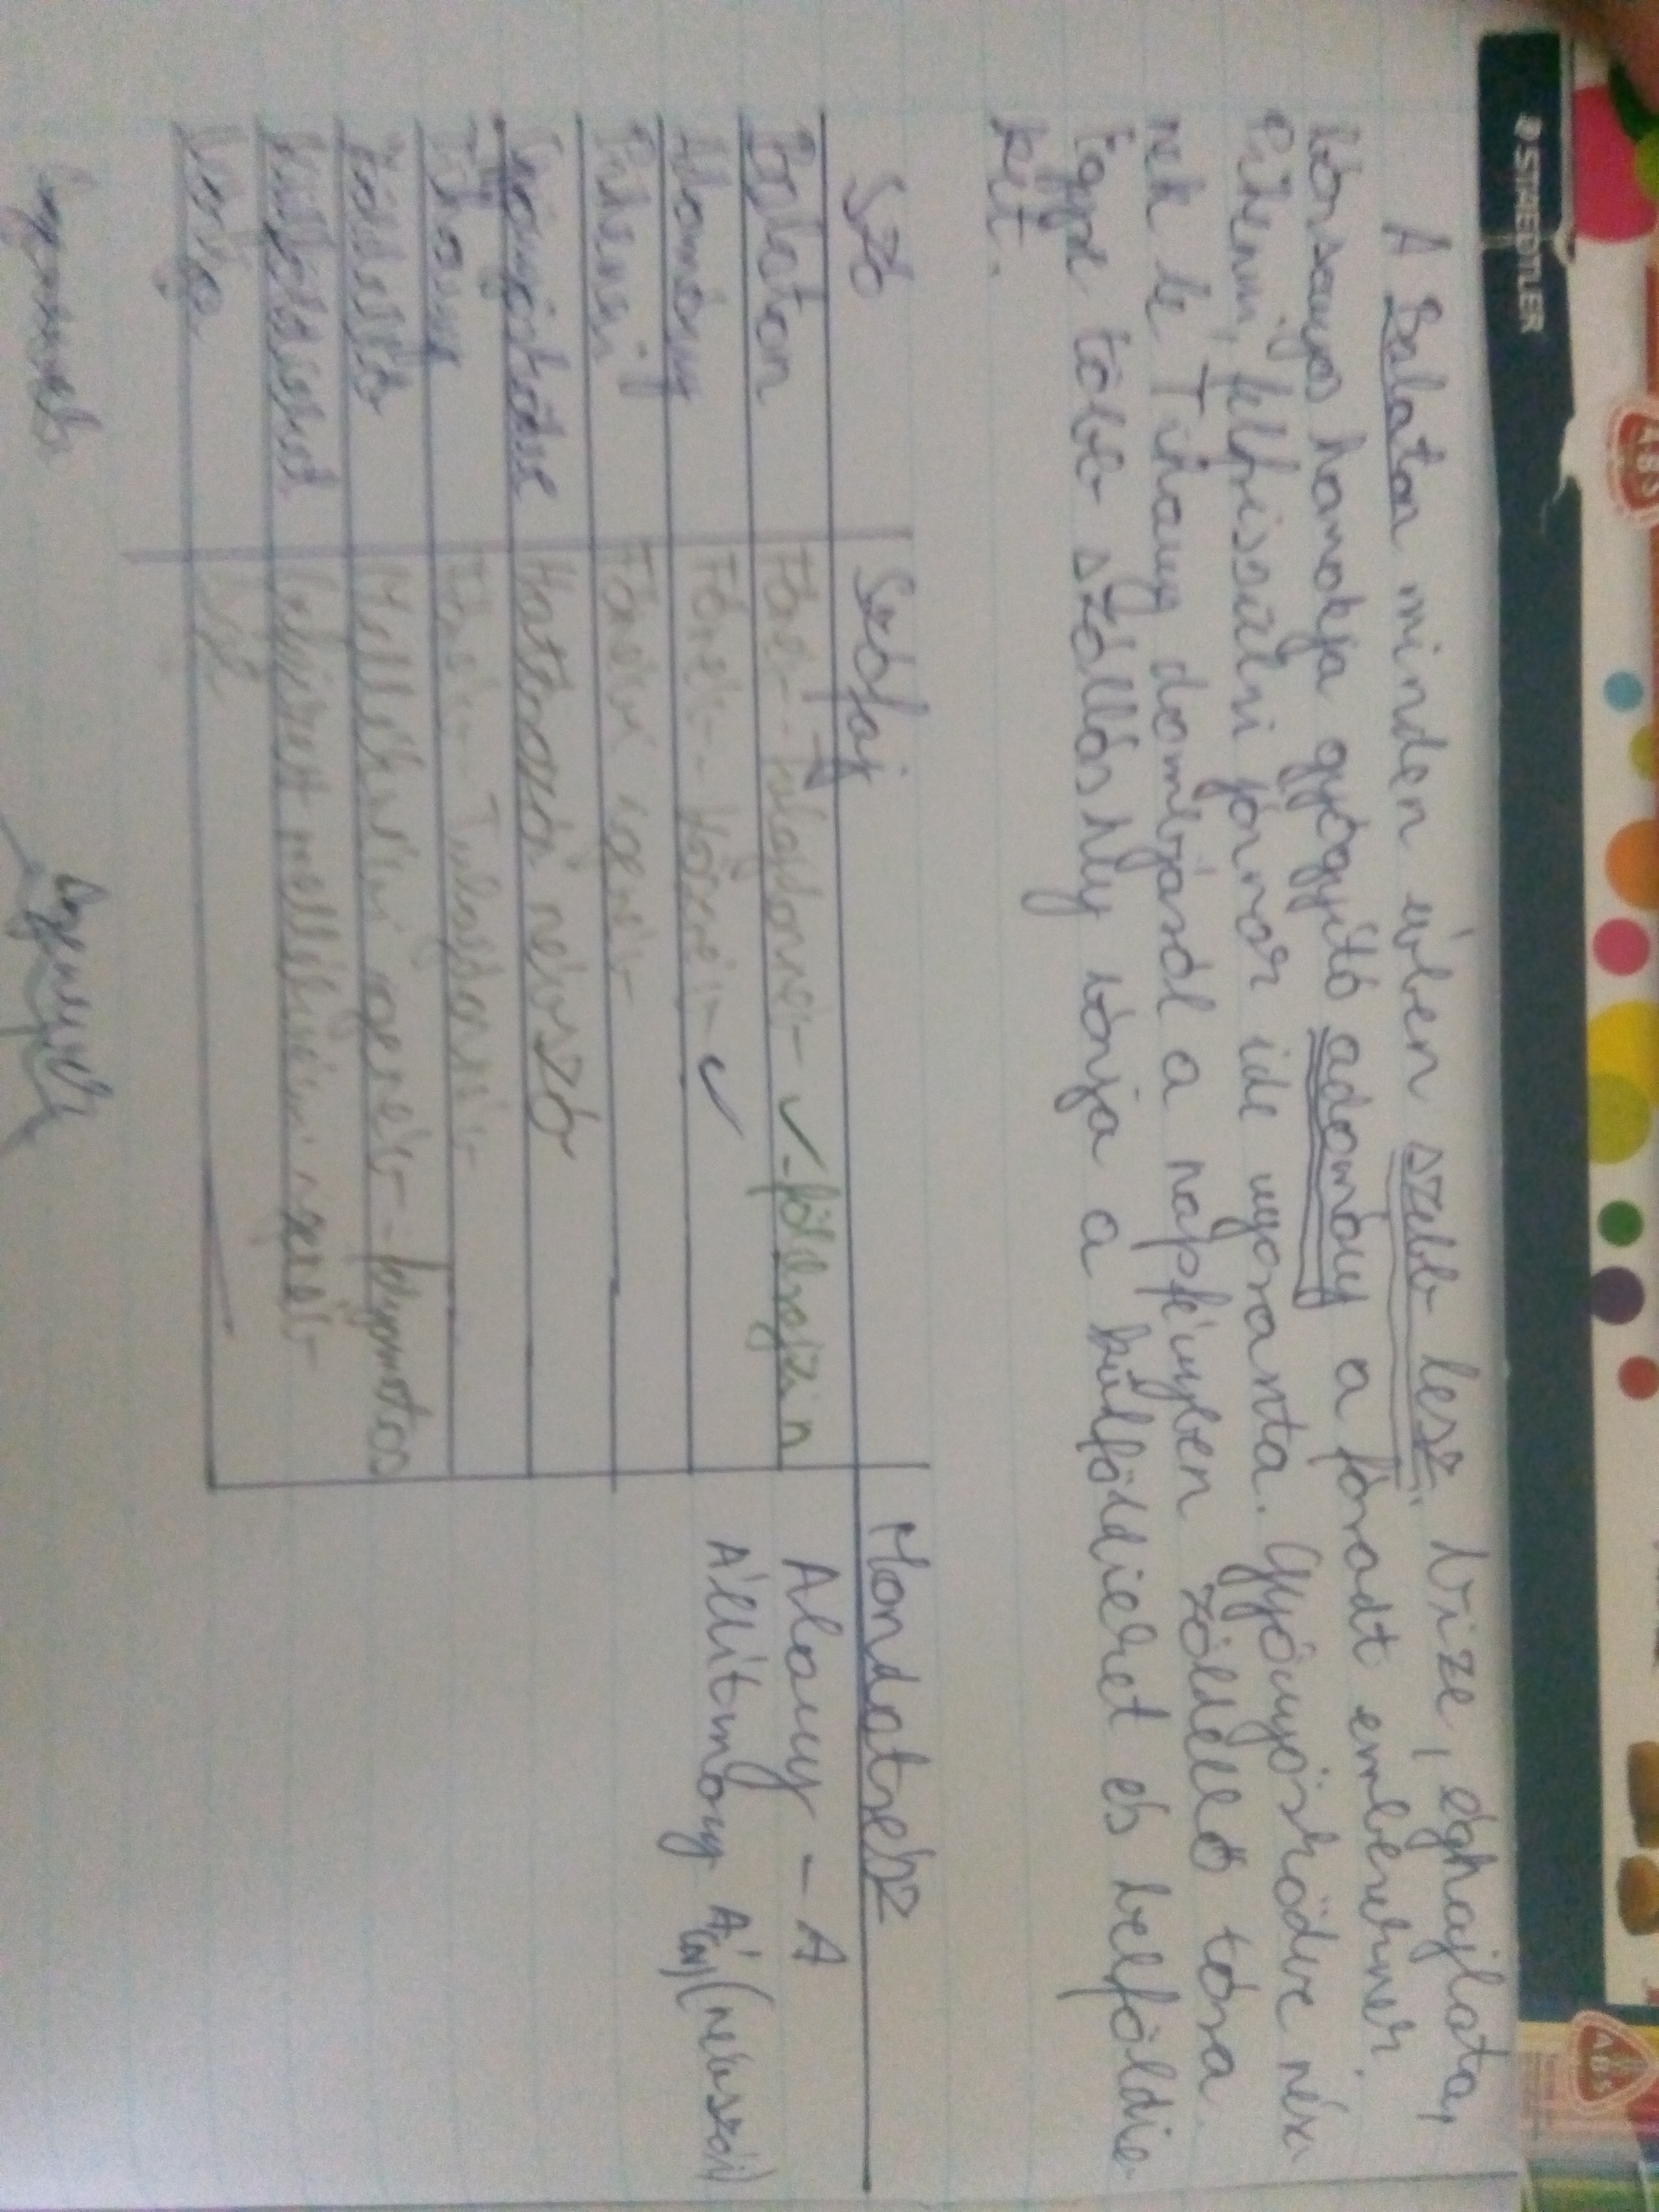 STAEDTLER
ABS
ABS
A Balaton minden évben szebb lesz. Vize, éghajlata,
bársonyos homokja gyógyító adomány a fáradt embereknek.
Pihenni, felfrissülni járnak ide nyaranta. Gyönyörködve néz
nek le Tihany dombjáról a napfényben zöldellő tóra.
Egyre több szálláshely várja a külföldieket és belföldie-
ket.
Szó Szófaj Mondatrész
Balaton Főnév - tulajdonnév - földrajzi n Alany - A
Adomány Főnév - köznév Állítmány Á (névszói)
Pihenni Főnévi igenév
Gyönyörködve Határozói névszó
Tihany Főnév - Tulajdonnév
Zöldellő Melléknévi igenév - folyamatos
Külföldieket melléknévi igenév
Várja Ige
Igenevek